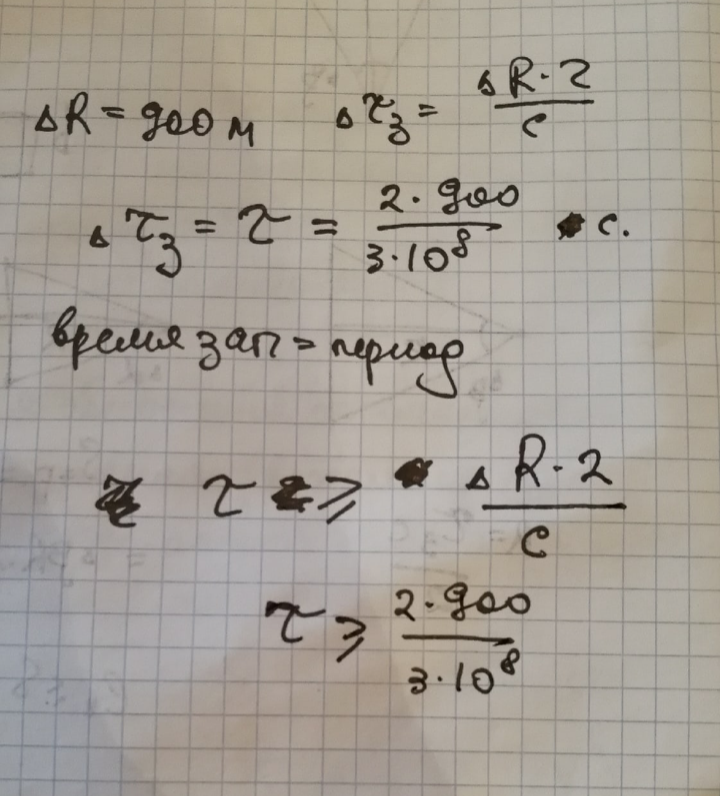 ΔR = 900 м Δτ₃ = ΔR · 2 / c
Δτ₃ = τ = 2 · 900 / 3 · 10⁸ c.
время зап = период
τ ⩾ ΔR · 2 / c
τ ⩾ 2 · 900 / 3 · 10⁸